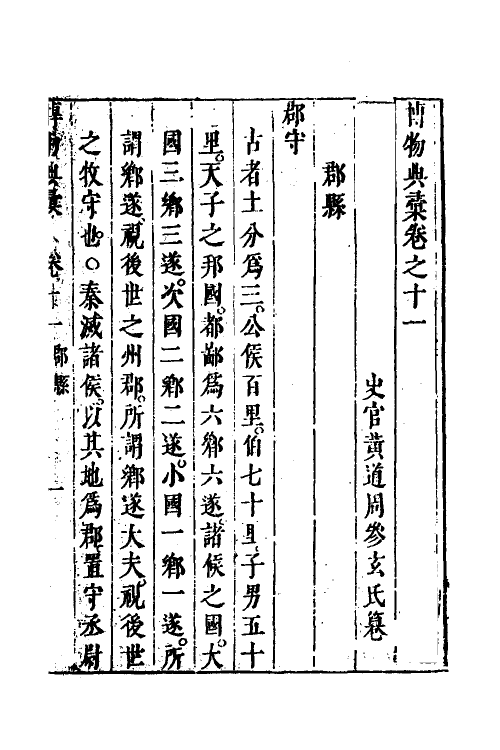 博物典彙卷之十一
史官黃道周參玄氏纂
郡縣
郡守
古者土分爲三。公侯百里。伯七十里。子男五十
里。天子之邦國。都鄙爲六鄉六遂。諸侯之國。大
國三鄉三遂。次國二鄉二遂。小國一鄉一遂。所
謂鄉遂。視後世之州郡。所謂鄉遂大夫。視後世
之牧守也。○秦滅諸侯。以其地爲郡。置守丞尉
博物典彙 卷十一 郡縣 一